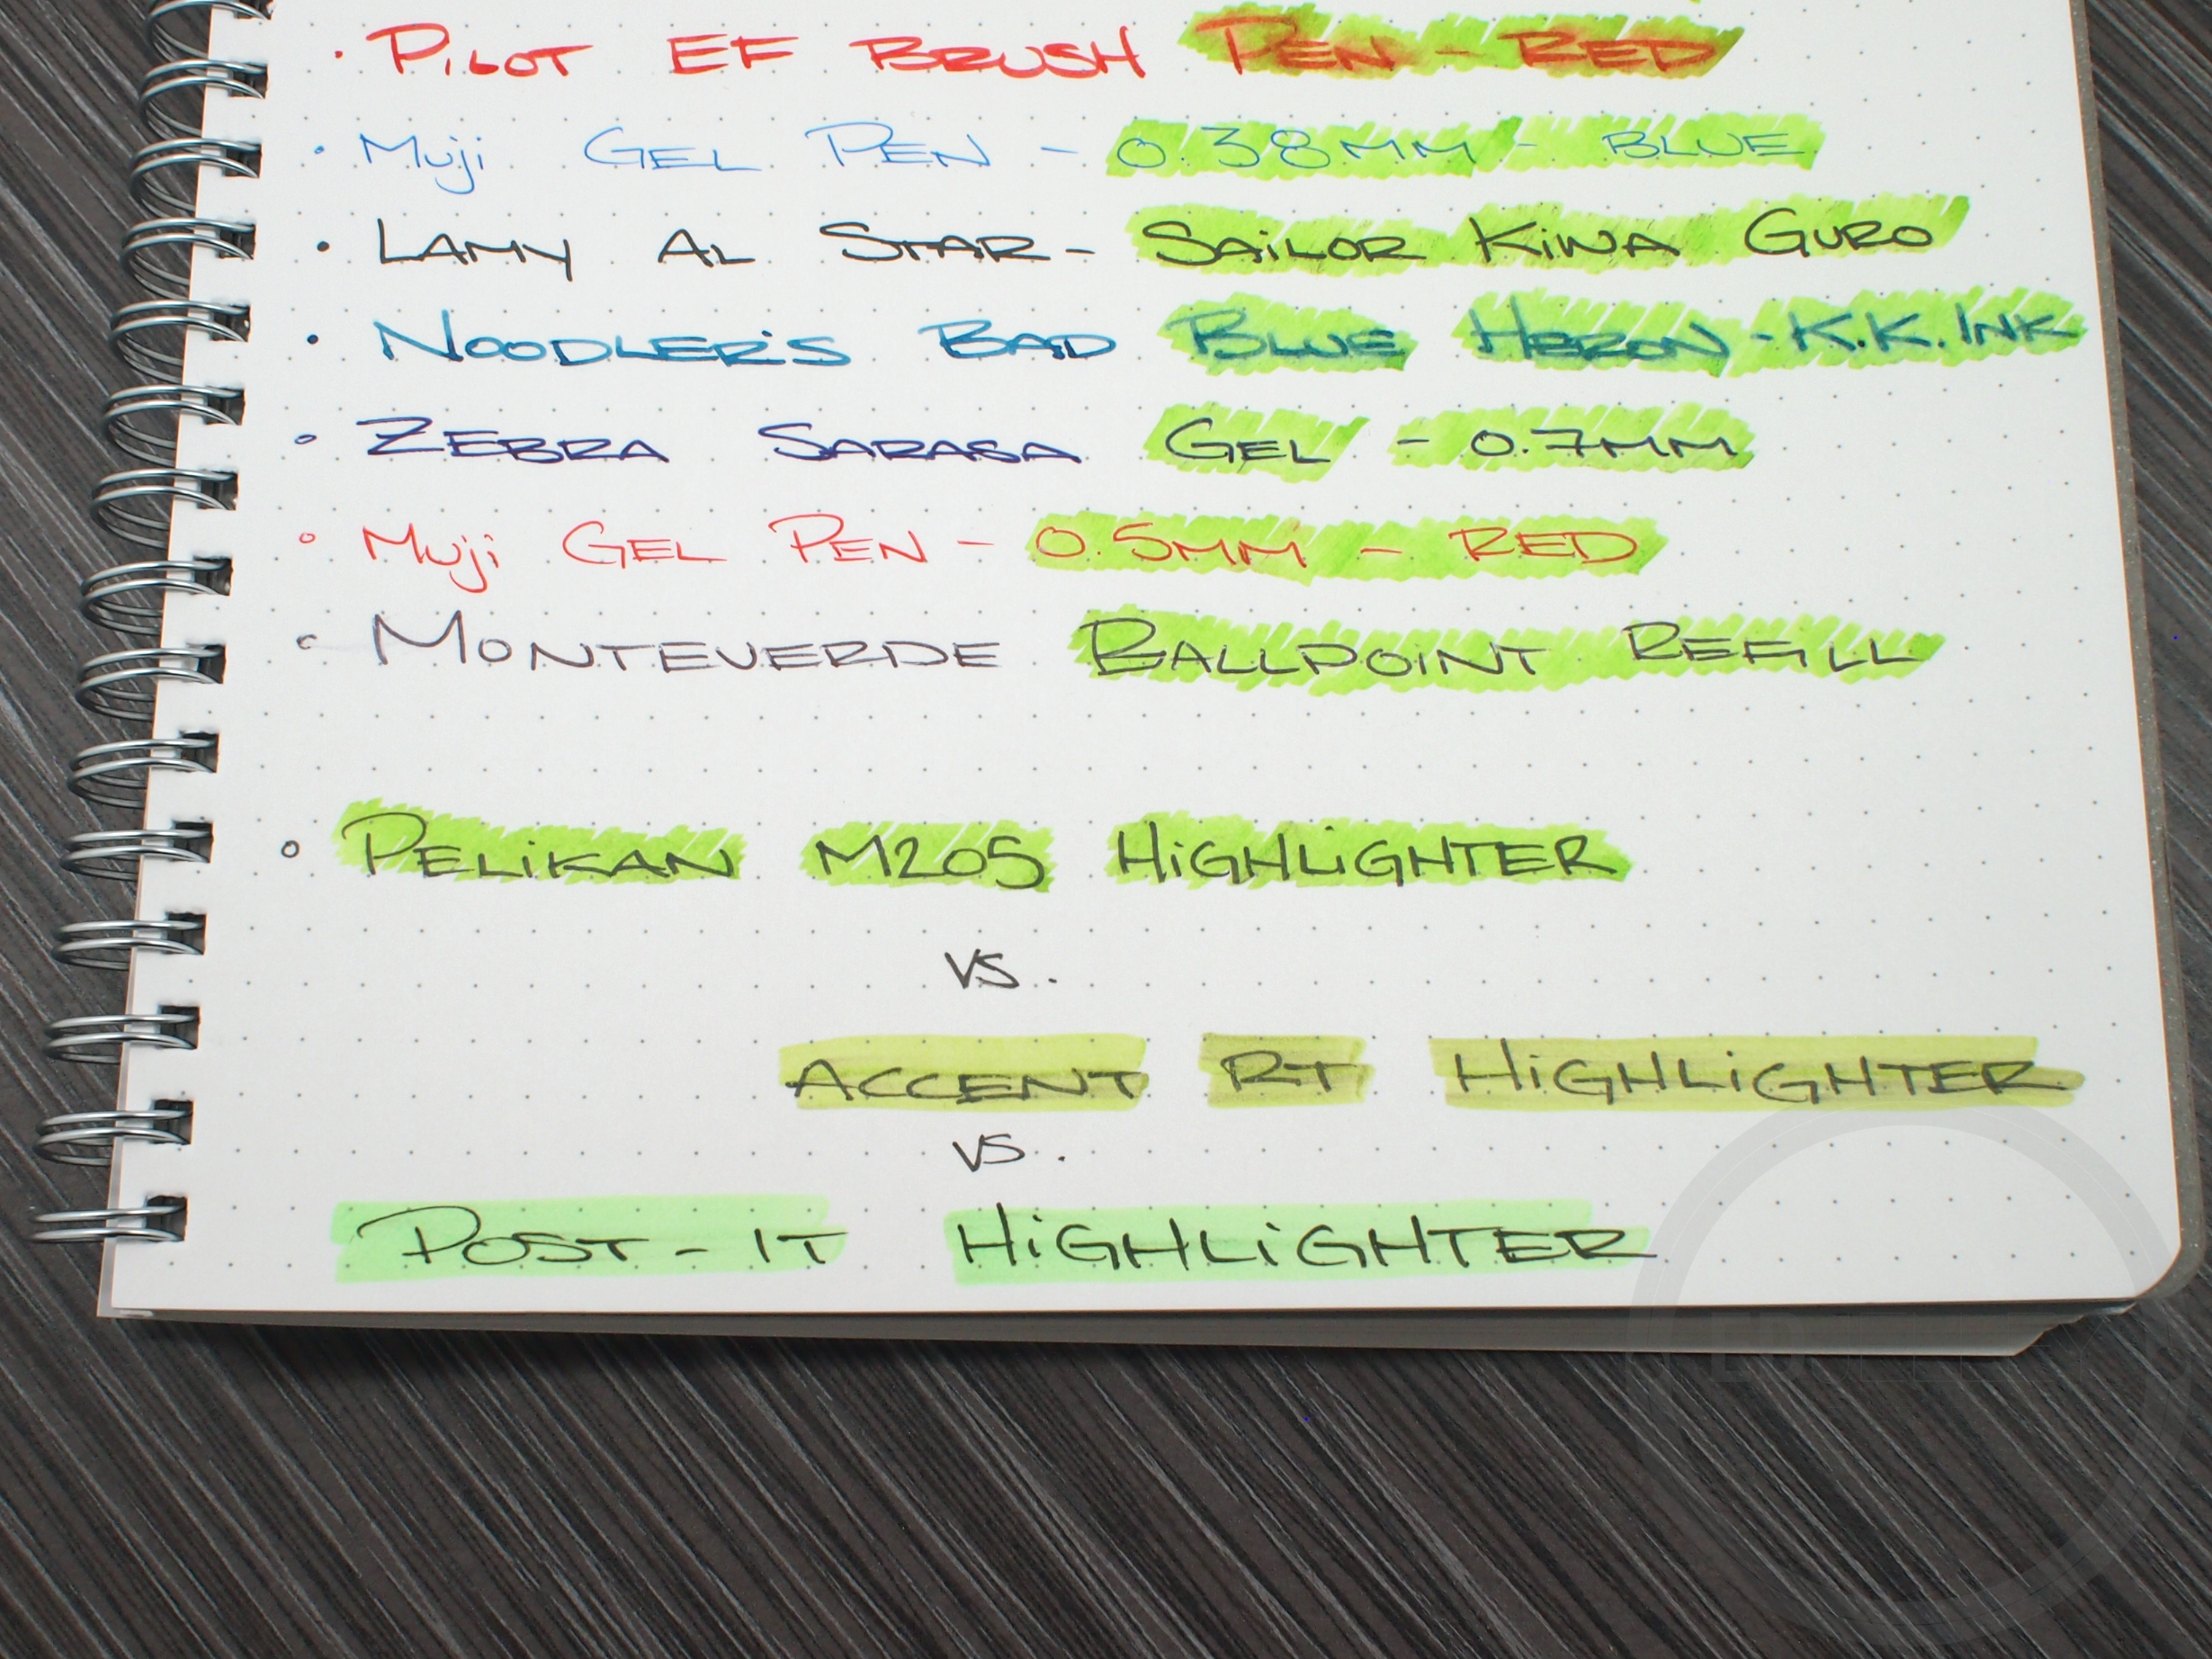 · Pilot EF Brush Pen - Red
· Muji Gel Pen - 0.38mm - Blue
· Lamy Al Star - Sailor Kiwa Guro
· Noodler's Bad Blue Heron - K.K. Ink
° Zebra Sarasa Gel - 0.7mm
° Muji Gel Pen - 0.5mm - Red
° Monteverde Ballpoint Refill
° Pelikan M205 Highlighter
vs.
Accent RT Highlighter
vs.
Post-it Highlighter